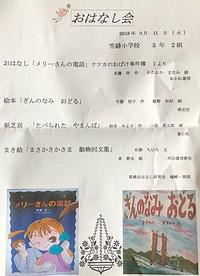 おはなし会
2018年 9月 11日 (火)
笠縫小学校 5年 2組
おはなし「メリーさんの電話」ナツカのおばけ事件簿 1より
斉藤 洋 作 かたおか まなみ 絵
あかね書房
絵本「ぎんのなみ おどる」
今関 信子 作 飯野 和好 絵
朔北社
紙芝居 「たべられた やまんば」
童心社
まき絵「まさかさかさま 動物回文集」
石津 ちひろ 文
長 新太 絵
河出書房新社
メリーさんの電話
ぎんのなみ
おどる